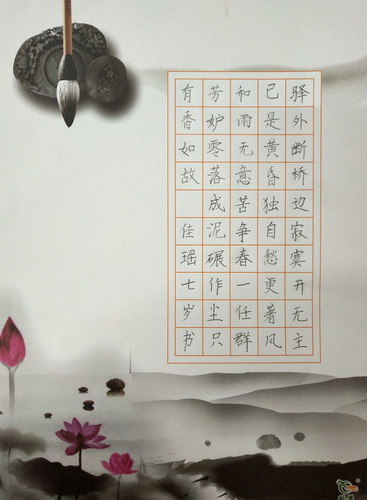 驿外断桥边寂寞开无主
已是黄昏独自愁更著风
和雨无意苦争春一任群
芳妒零落成泥碾作尘只
有香如故 佳瑶七岁书